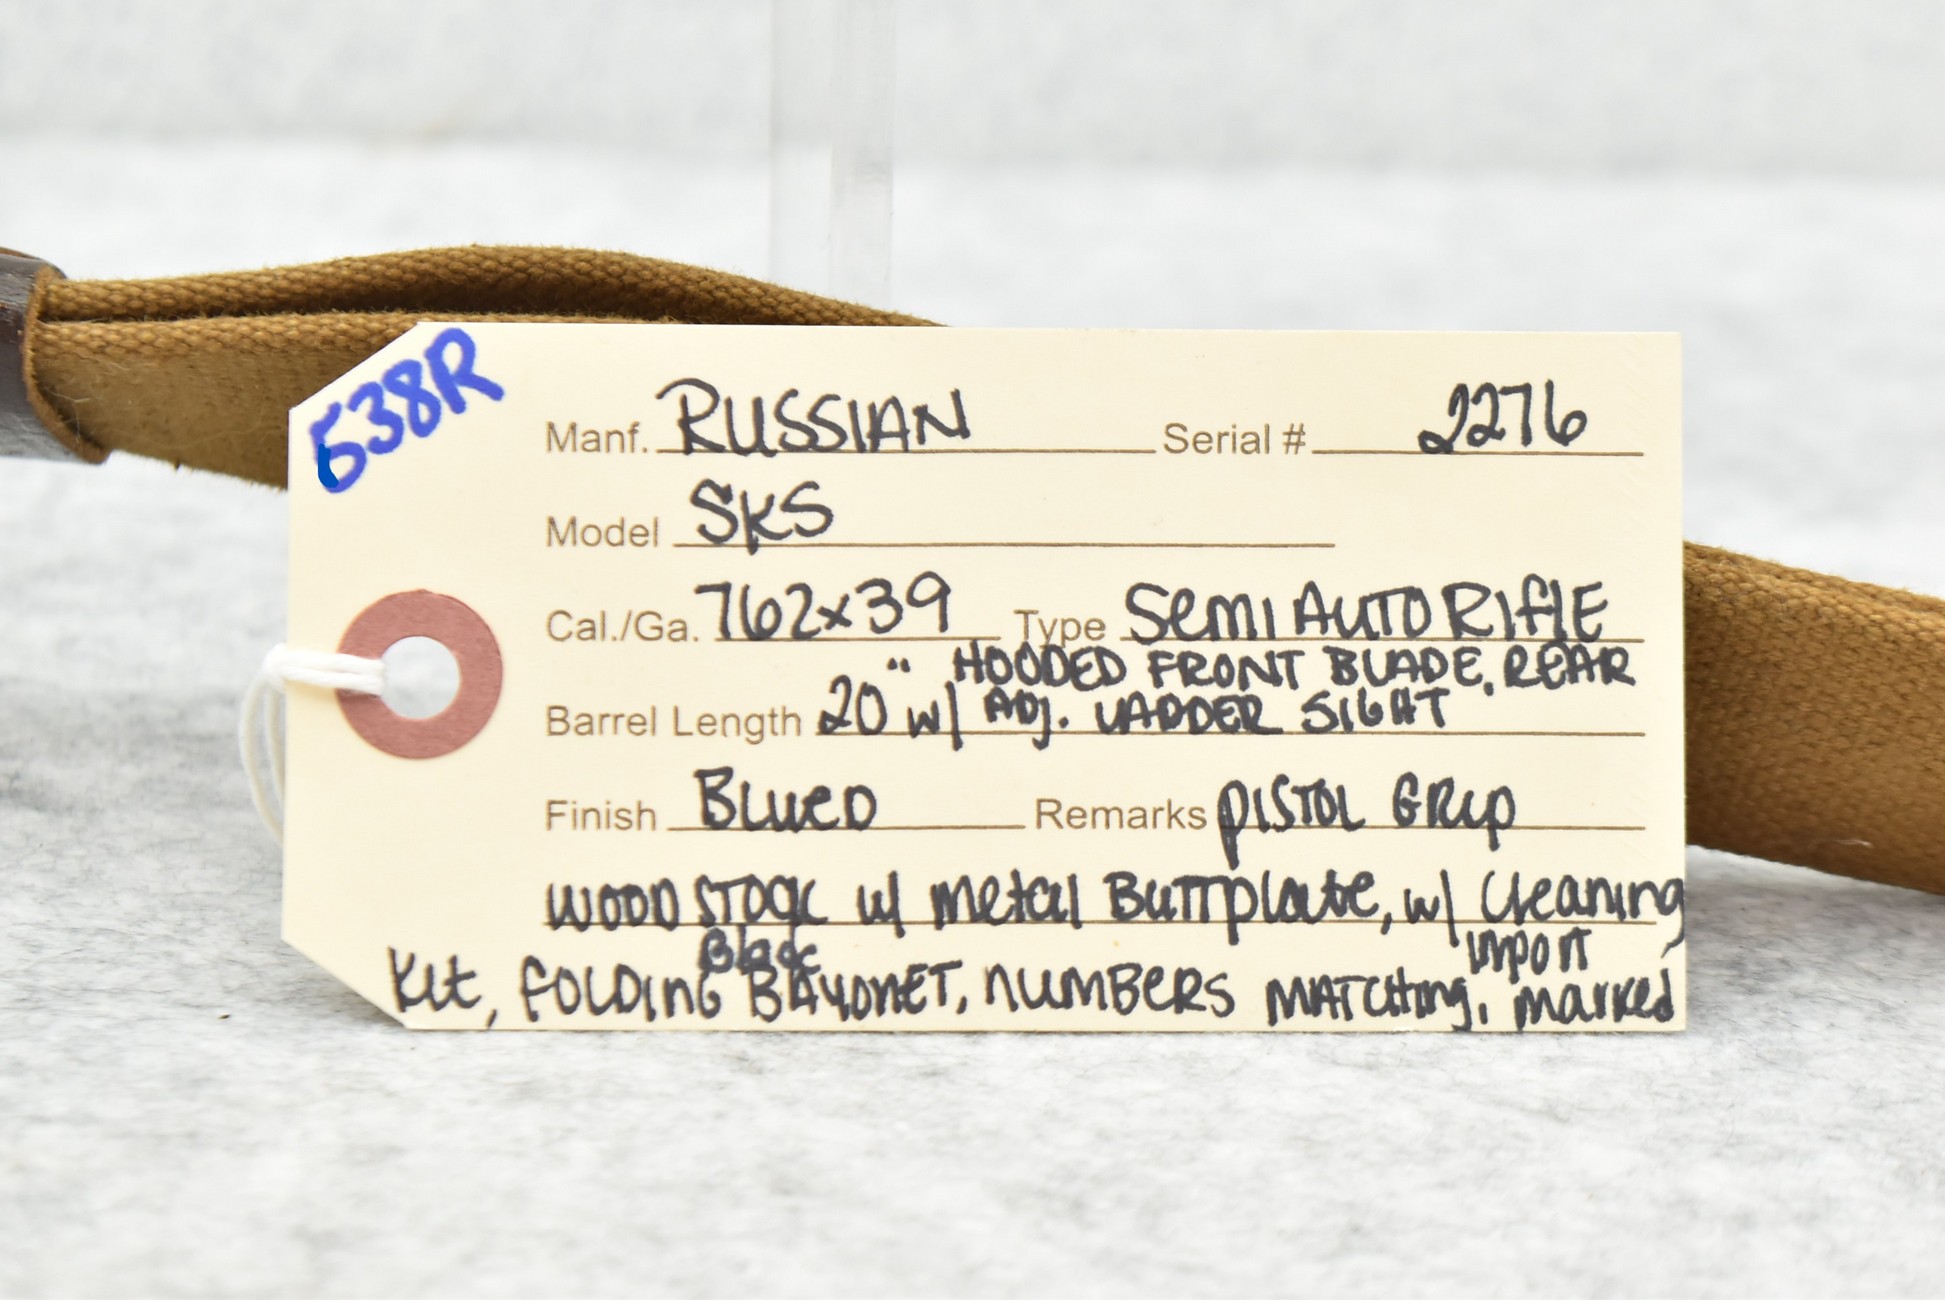 538R
Manf. RUSSIAN Serial # 2276
Model SKS
Cal./Ga. 762x39 Type Semi AUTO RiflE
HOODED FRONT BLADE, REAR
Barrel Length 20" w/ ADJ. LADDER SIGHT
Finish BlueD Remarks PISTOL GRip
WOOD STOCK w/ metal Buttplate, w/ Cleaning
Black import
Kit, FOLDING BAYONET, NUMBERS MATCHING, marked